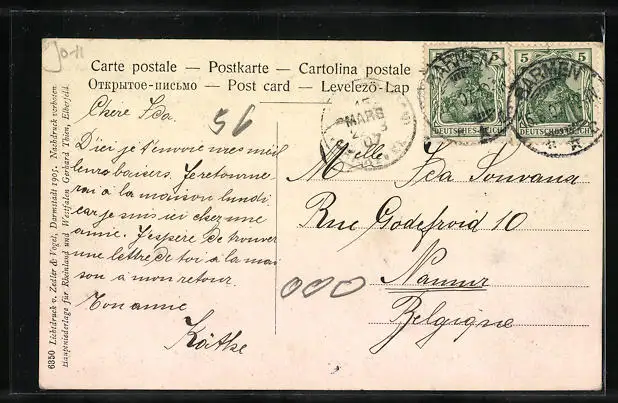 Jo-11
Carte postale — Postkarte — Cartolina postale —
Открытое-письмо — Post card — Levelező-Lap
6350 Lichtdruck v. Zedler & Vogel, Darmstadt 1905. Nachdruck verboten
Hauptniederlage für Rheinland und Westfalen Gerhard Thien, Elberfeld.
Chère Ida.
D'ici je t'envoie mes meil
leurs baisers. Je retourne
rai à la maison lundi
car je suis ici chez une
amie. J'espère de trouver
une lettre de toi à la mai
son à mon retour.
Ton amie
Käthe
56
MARS
07
5 5
DEUTSCHES REICH
BARMEN
5 5
DEUTSCHES REICH
BARMEN
Melle Ida Souvana
Rue Godefroid 10
Namur
Belgique
000